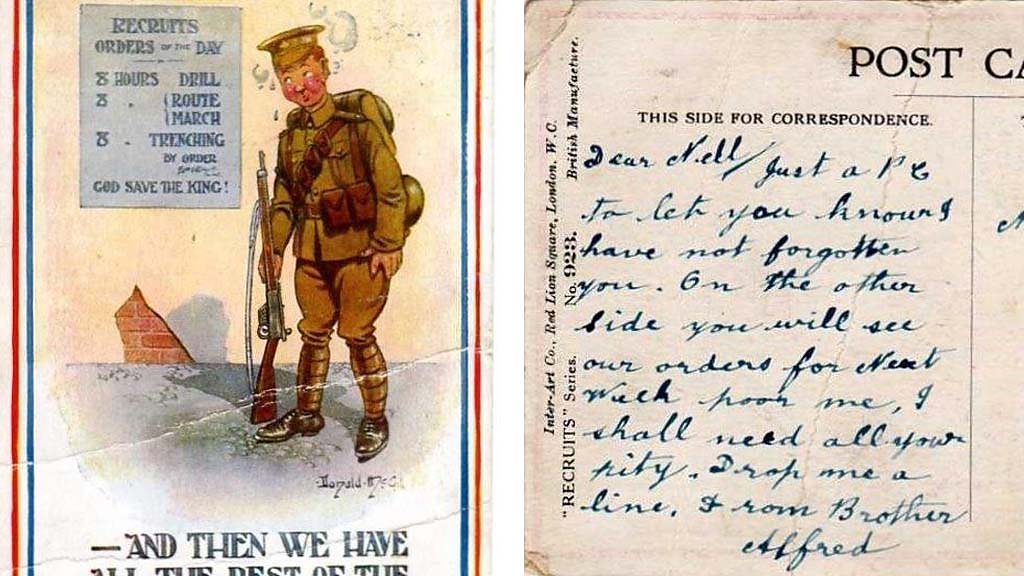 RECRUITS
ORDERS OF THE DAY
8 HOURS DRILL
8 " ROUTE
MARCH
8 " TRENCHING
BY ORDER
GOD SAVE THE KING!
Donald McG
—AND THEN WE HAVE
ALL THE REST OF THE
POST CA
THIS SIDE FOR CORRESPONDENCE.
Inter-Art Co., Red Lion Square, London, W.C.
British Manufacture.
"RECRUITS" Series. No. 923.
Dear Nell / Just a P C
to let you know I
have not forgotten
you. On the other
side you will see
our orders for Next
Week poor me, I
shall need all your
pity. Drop me a
line, From Brother
Alfred